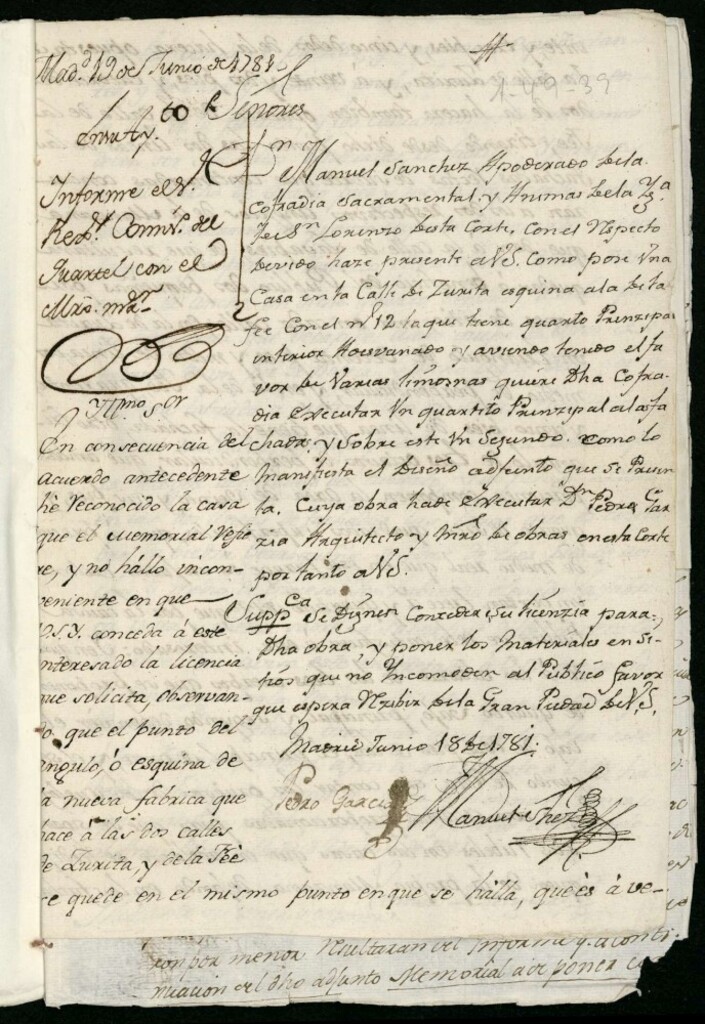 Mad.d 19 de Junio de 1781
1-49-39
to
Señores
Informe el S.r
Rex.r Comis.o del
Quartel con el
Mro. mr.
Yll.mo S.or
En consecuencia del
acuerdo antecedente
hè reconocido la casa
que el Memorial refie
re, y no hállo incon-
veniente en que
V.S.Y. conceda á este
interesado la licencia
que solicita, observan-
do que el punto del
angulo, ó esquina de
la nueva fabrica que
hace á las dos calles
de Zurita, y de la Fèè
se quede en el mismo punto en que se hálla, que ès á ve-
Manuel Sanchez Apoderado de la
Cofradia Sacramental y Animas de la Yg.a
de S.n Lorenzo desta Corte, con el Respecto
devido haze presente a V.S. Como pose Vna
Casa en la Calle de Zurita esquina a la de la
fee Con el n.o 12 la que tiene quarto Prinzipal
interior Aoesvanado y aviendo tenido el fa
vor de Varias limosnas quiere Dha Cofra
dia executar Vn quartito Prinzipal a la fa
chada, y sobre este Vn Segundo. Como lo
manifiesta el Diseño adjunto que se Presen
ta. Cuya obra ha de executar D.n Pedro Gar
zia Arquitecto y Mrō de obras en esta Corte
por tanto a V.S.
Supp.ca se Dignen Conceder su licenzia para
Dha obra, y poner los Materiales en Si-
tios que no Yncomoden al Publico favor
que espera Rezibir de la Gran Piedad de V.S.
Madrid Junio 18 de 1781.
Pedro Garcia
Manuel Shez
con por menor Resultaran del Ynforme y a conti
nuacion del dho adjunto Memorial a de poner